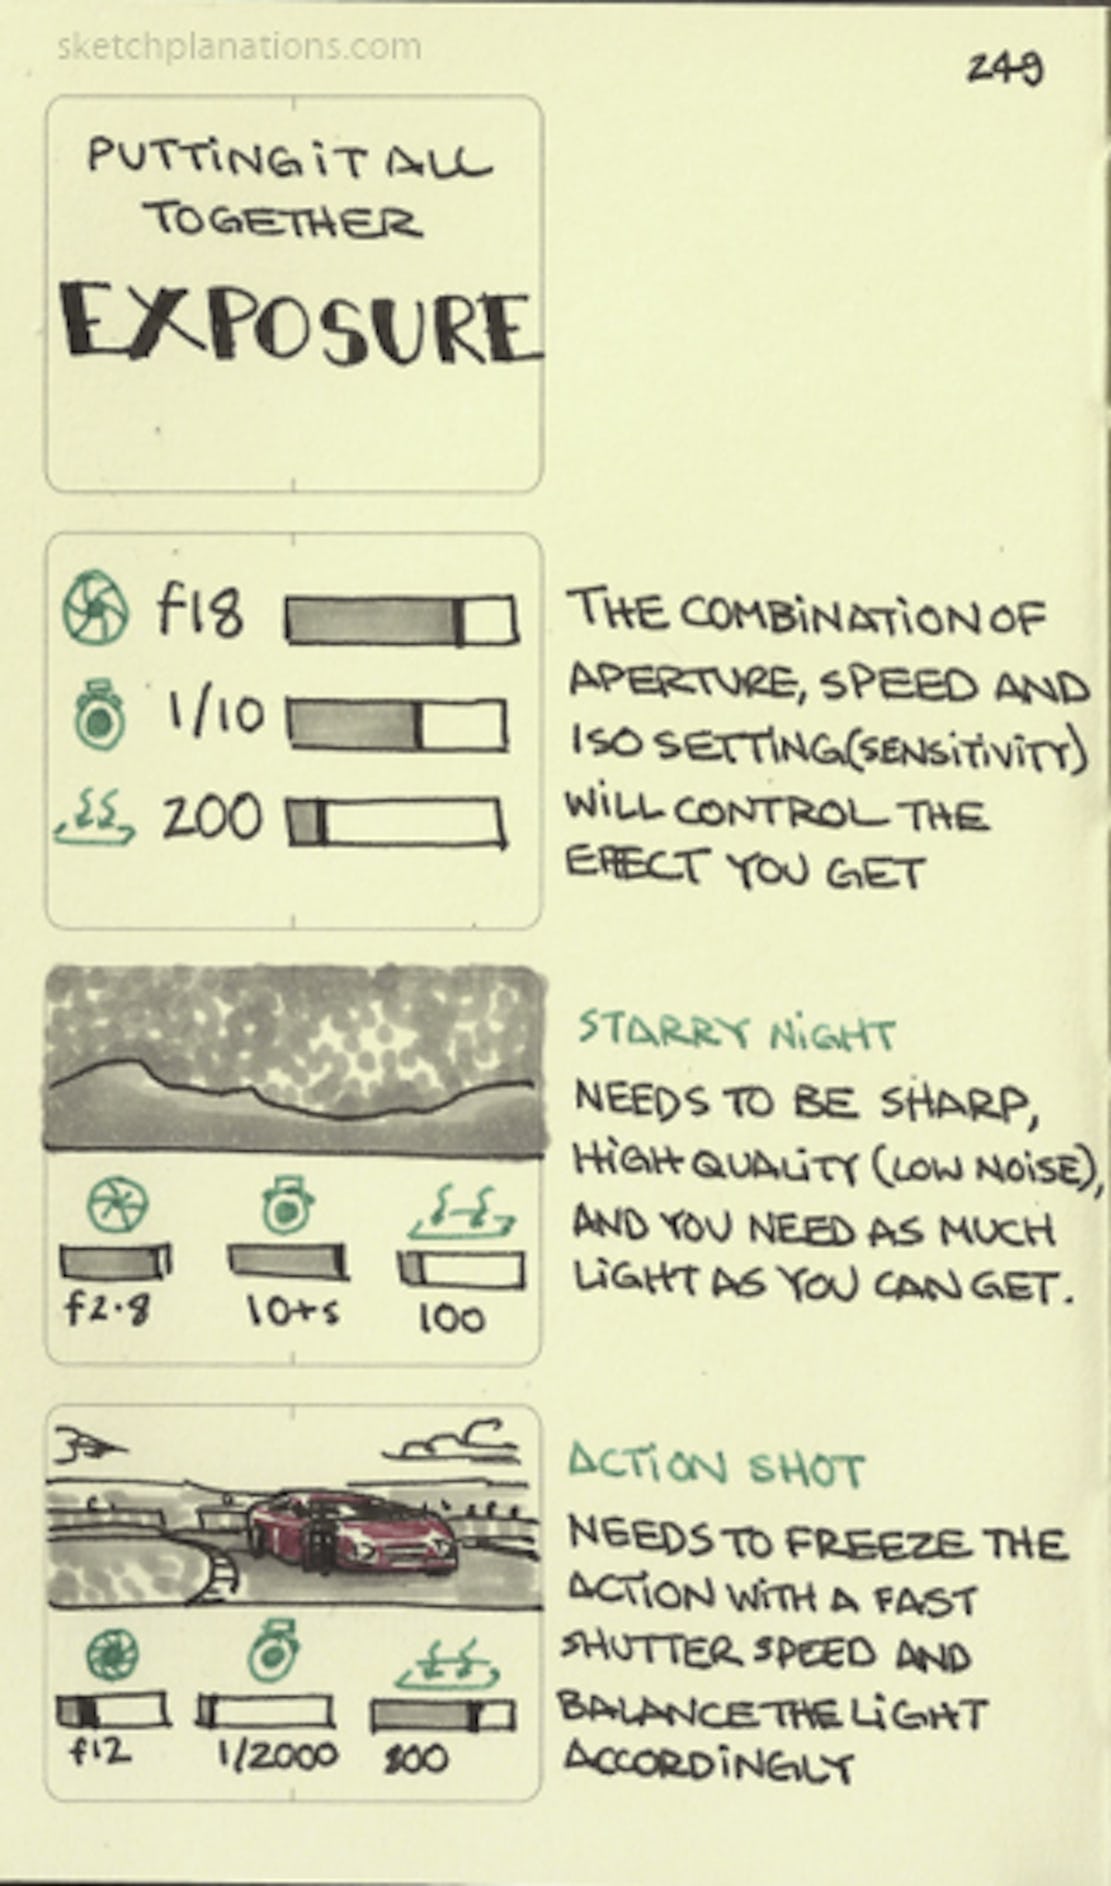 sketchplanations.com
249
PUTTING IT ALL
TOGETHER
EXPOSURE
f18
1/10
200
THE COMBINATION OF
APERTURE, SPEED AND
ISO SETTING (SENSITIVITY)
WILL CONTROL THE
EFFECT YOU GET
f2.8
10+s
100
STARRY NIGHT
NEEDS TO BE SHARP,
HIGH QUALITY (LOW NOISE),
AND YOU NEED AS MUCH
LIGHT AS YOU CAN GET.
f12
1/2000
800
ACTION SHOT
NEEDS TO FREEZE THE
ACTION WITH A FAST
SHUTTER SPEED AND
BALANCE THE LIGHT
ACCORDINGLY